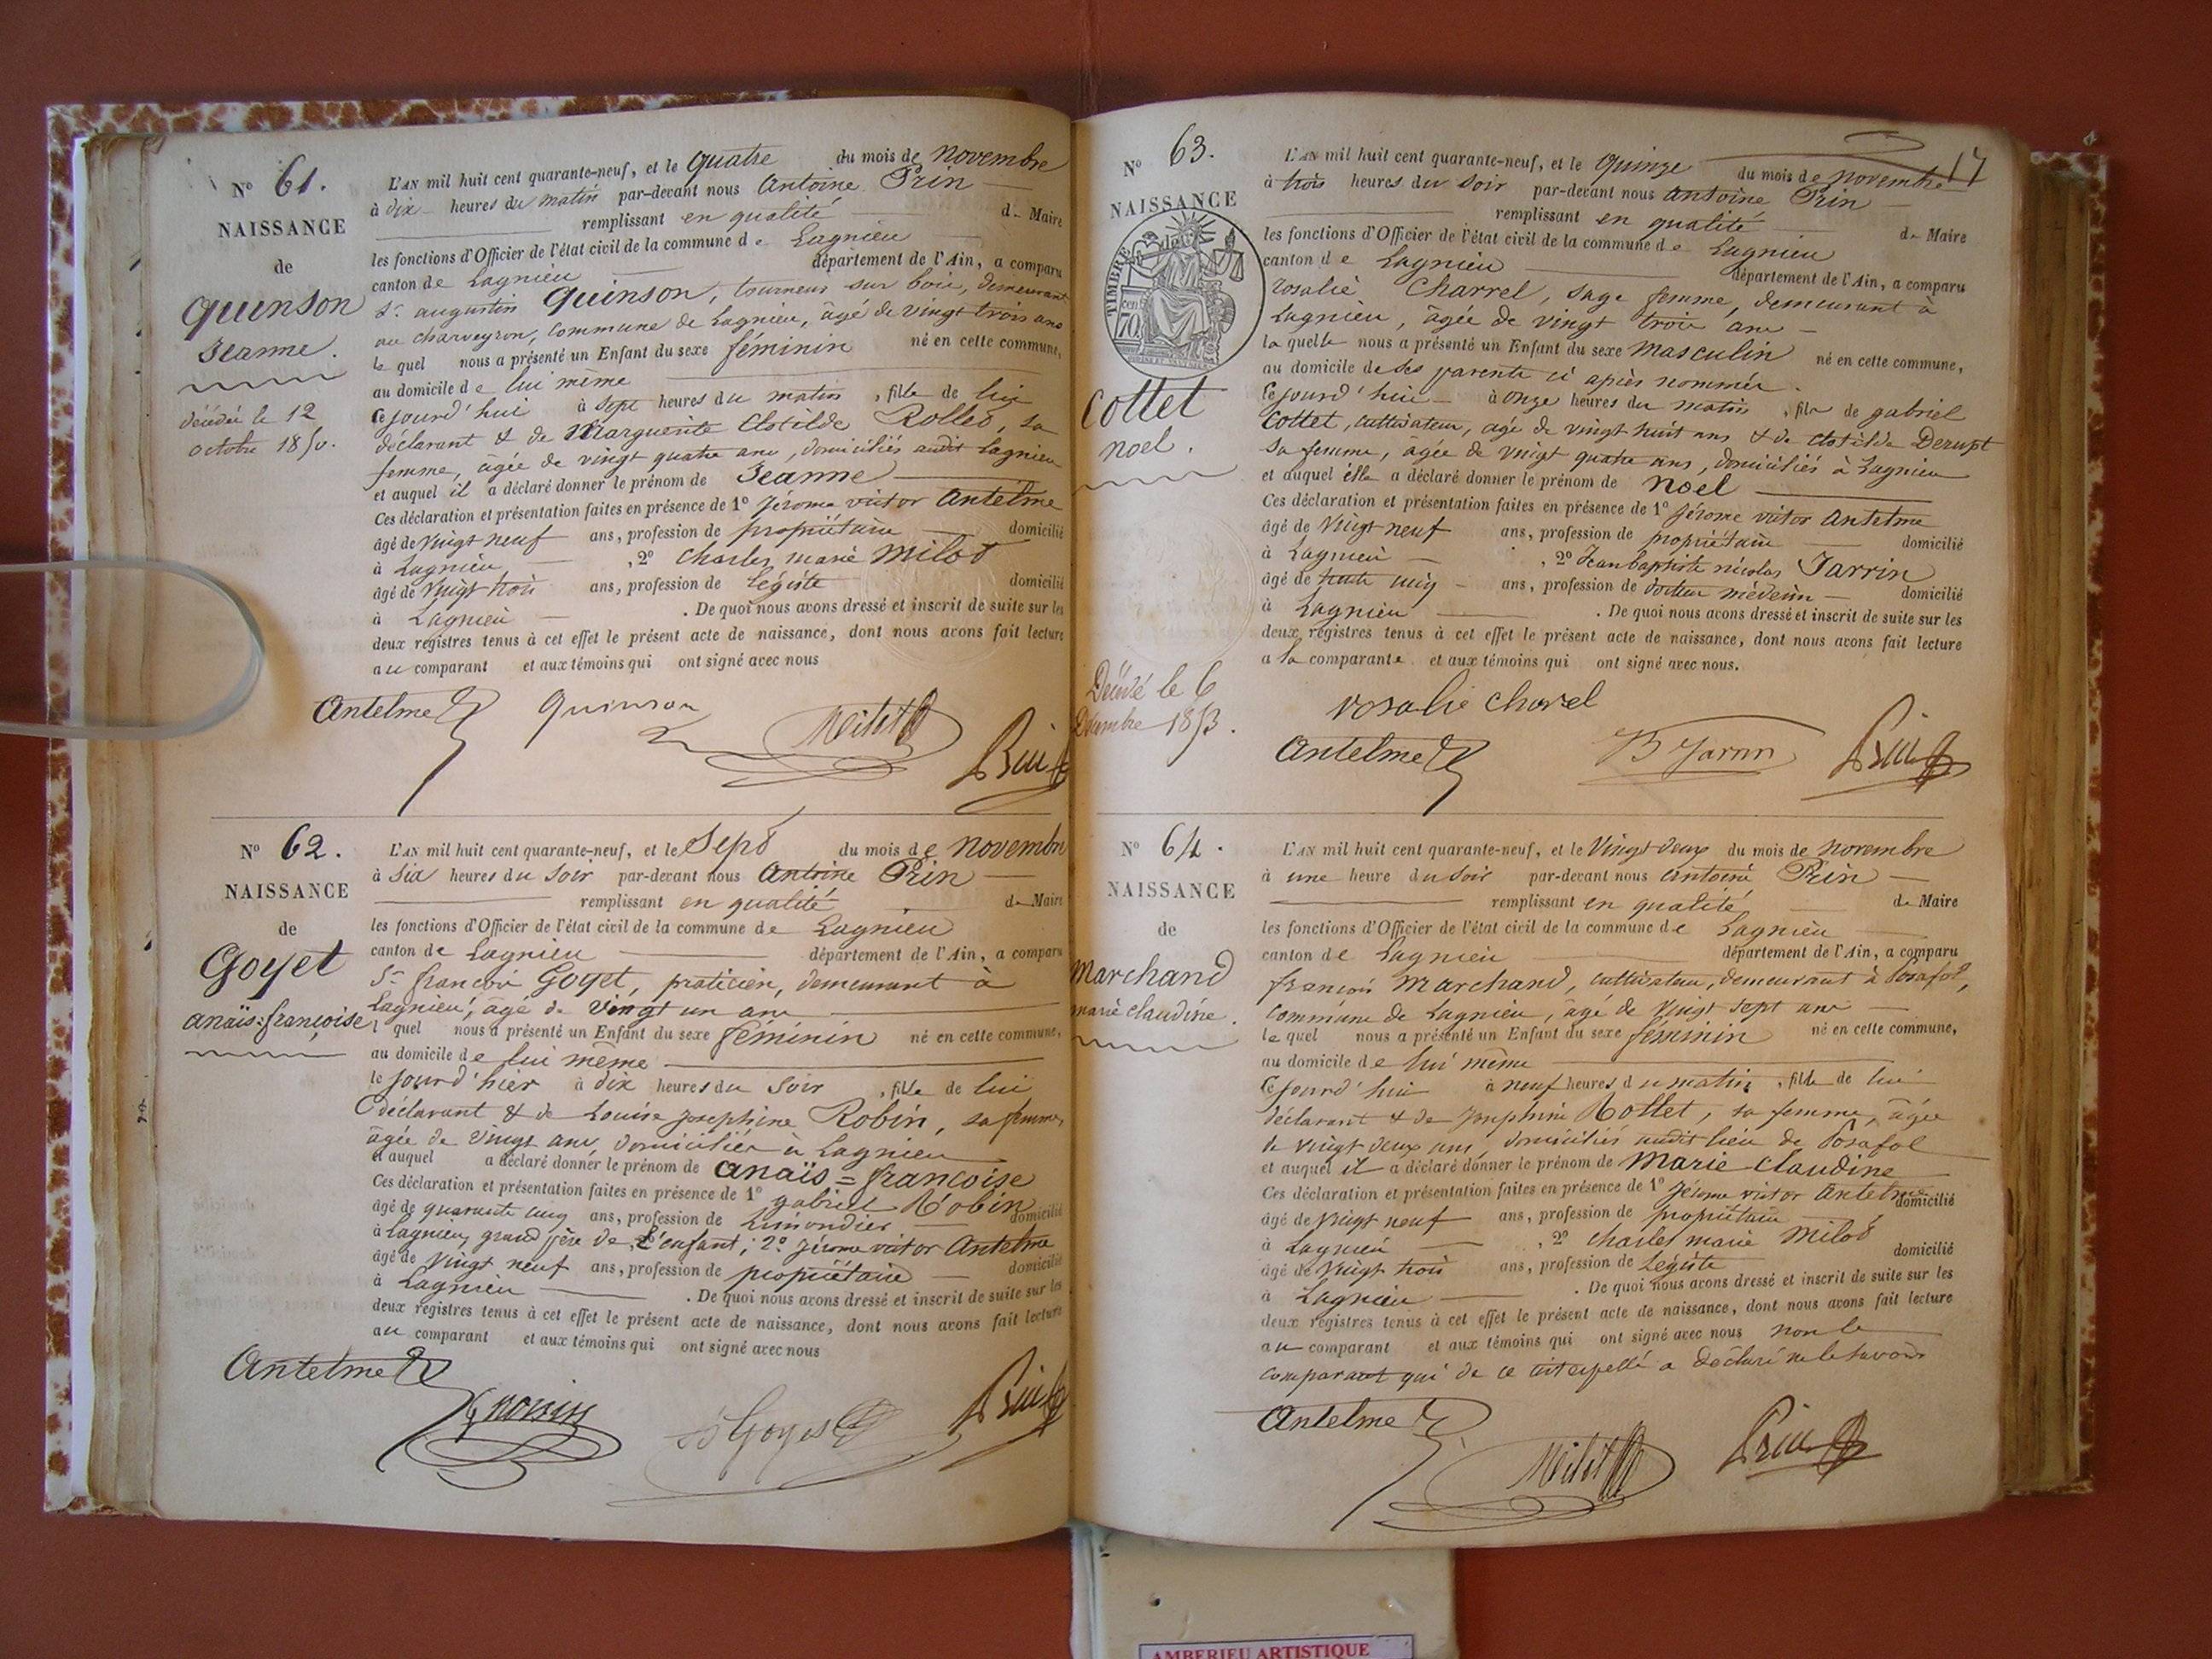 N° 61.
NAISSANCE
de
Quinson
Jeanne.
décédée le 12
octobre 1850.
L'AN mil huit cent quarante-neuf, et le quatre du mois de novembre
à dix heures du matin par-devant nous Antoine Prin
remplissant en qualité de Maire
les fonctions d'Officier de l'état civil de la commune de Lagnieu
canton de Lagnieu département de l'Ain, a comparu
Sr augustin Quinson, tourneur sur bois, demeurant
au charveyron, commune de Lagnieu, âgé de vingt trois ans
le quel nous a présenté un Enfant du sexe féminin né en cette commune,
au domicile de lui même
cejourd'hui à sept heures du matin, fille de lui
déclarant & de Marguerite Clotilde Rollet, sa
femme, âgée de vingt quatre ans, domiciliés audit Lagnieu
et auquel il a déclaré donner le prénom de Jeanne
Ces déclaration et présentation faites en présence de 1° Jérome victor Antelme
âgé de vingt neuf ans, profession de propriétaire domicilié
à Lagnieu, 2° Charles marie Milot
âgé de vingt trois ans, profession de Légiste domicilié
à Lagnieu. De quoi nous avons dressé et inscrit de suite sur les
deux registres tenus à cet effet le présent acte de naissance, dont nous avons fait lecture
au comparant et aux témoins qui ont signé avec nous
Antelme Quinson Milot Prin
N° 62.
NAISSANCE
de
Goyet
anaïs=françoise
L'AN mil huit cent quarante-neuf, et le Sept du mois de novembre
à six heures du soir par-devant nous Antoine Prin
remplissant en qualité de Maire
les fonctions d'Officier de l'état civil de la commune de Lagnieu
canton de Lagnieu département de l'Ain, a comparu
Sr françois Goyet, praticien, demeurant à
Lagnieu, âgé de vingt un ans
l quel nous a présenté un Enfant du sexe féminin né en cette commune,
au domicile de lui même
le jourd'hier à dix heures du soir, fille de lui
déclarant & de Louise josephine Robin, sa femme,
âgée de vingt ans, domiciliés à Lagnieu
et auquel a déclaré donner le prénom de anaïs=françoise
Ces déclaration et présentation faites en présence de 1° gabriel Robin
âgé de quarante cinq ans, profession de Limondier domicilié
à Lagnieu, grand père de L'enfant; 2° Jérome victor Antelme
âgé de vingt neuf ans, profession de propriétaire domicilié
à Lagnieu. De quoi nous avons dressé et inscrit de suite sur les
deux registres tenus à cet effet le présent acte de naissance, dont nous avons fait lecture
au comparant et aux témoins qui ont signé avec nous
Antelme Goyet Prin
17
N° 63.
NAISSANCE
TIMBRE
70
Cottet
noel.
Décédé le 6
Décembre 1853.
L'AN mil huit cent quarante-neuf, et le quinze du mois de novembre
à trois heures du soir par-devant nous Antoine Prin
remplissant en qualité de Maire
les fonctions d'Officier de l'état civil de la commune de Lagnieu
canton de Lagnieu département de l'Ain, a comparu
rosalie Charrel, sage femme, demeurant à
Lagnieu, âgée de vingt trois ans
la quelle nous a présenté un Enfant du sexe masculin né en cette commune,
au domicile de ses parents ci après nommés.
cejourd'hui à onze heures du matin, fils de gabriel
Cottet, cultivateur, agé de vingt huit ans & de clotilde Derupt
sa femme, âgée de vingt quatre ans, domiciliés à Lagnieu
et auquel elle a déclaré donner le prénom de noel
Ces déclaration et présentation faites en présence de 1° Jérome victor Antelme
âgé de vingt neuf ans, profession de propriétaire domicilié
à Lagnieu, 2° Jean baptiste nicolas Jarrin
âgé de trente cinq ans, profession de docteur médecin domicilié
à Lagnieu. De quoi nous avons dressé et inscrit de suite sur les
deux registres tenus à cet effet le présent acte de naissance, dont nous avons fait lecture
a la comparante et aux témoins qui ont signé avec nous.
rosalie charel
Antelme Jarrin Prin
N° 64.
NAISSANCE
de
Marchand
marie claudine.
L'AN mil huit cent quarante-neuf, et le vingt deux du mois de novembre
à une heure du soir par-devant nous Antoine Prin
remplissant en qualité de Maire
les fonctions d'Officier de l'état civil de la commune de Lagnieu
canton de Lagnieu département de l'Ain, a comparu
françois Marchand, cultivateur, demeurant à Posafol,
commune de Lagnieu, âgé de vingt sept ans
le quel nous a présenté un Enfant du sexe féminin né en cette commune,
au domicile de lui même
cejourd'hui à neuf heures du matin, fille de lui
déclarant & de Josephine Rollet, sa femme, âgée
de vingt deux ans, domiciliés audit lieu de Posafol
et auquel il a déclaré donner le prénom de Marie Claudine
Ces déclaration et présentation faites en présence de 1° Jérome victor Antelme
âgé de vingt neuf ans, profession de propriétaire domicilié
à Lagnieu, 2° Charles marie Milot
âgé de vingt trois ans, profession de Légiste domicilié
à Lagnieu. De quoi nous avons dressé et inscrit de suite sur les
deux registres tenus à cet effet le présent acte de naissance, dont nous avons fait lecture
au comparant et aux témoins qui ont signé avec nous non le
comparant qui de ce interpellé a déclaré ne le savoir
Antelme Milot Prin
AMBERIEU ARTISTIQUE